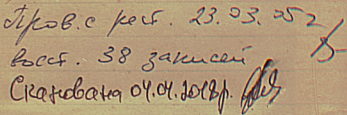 Пров. с рест. 23.03.05 г
восст. 38 записей
Сканована 04.04.2018р.